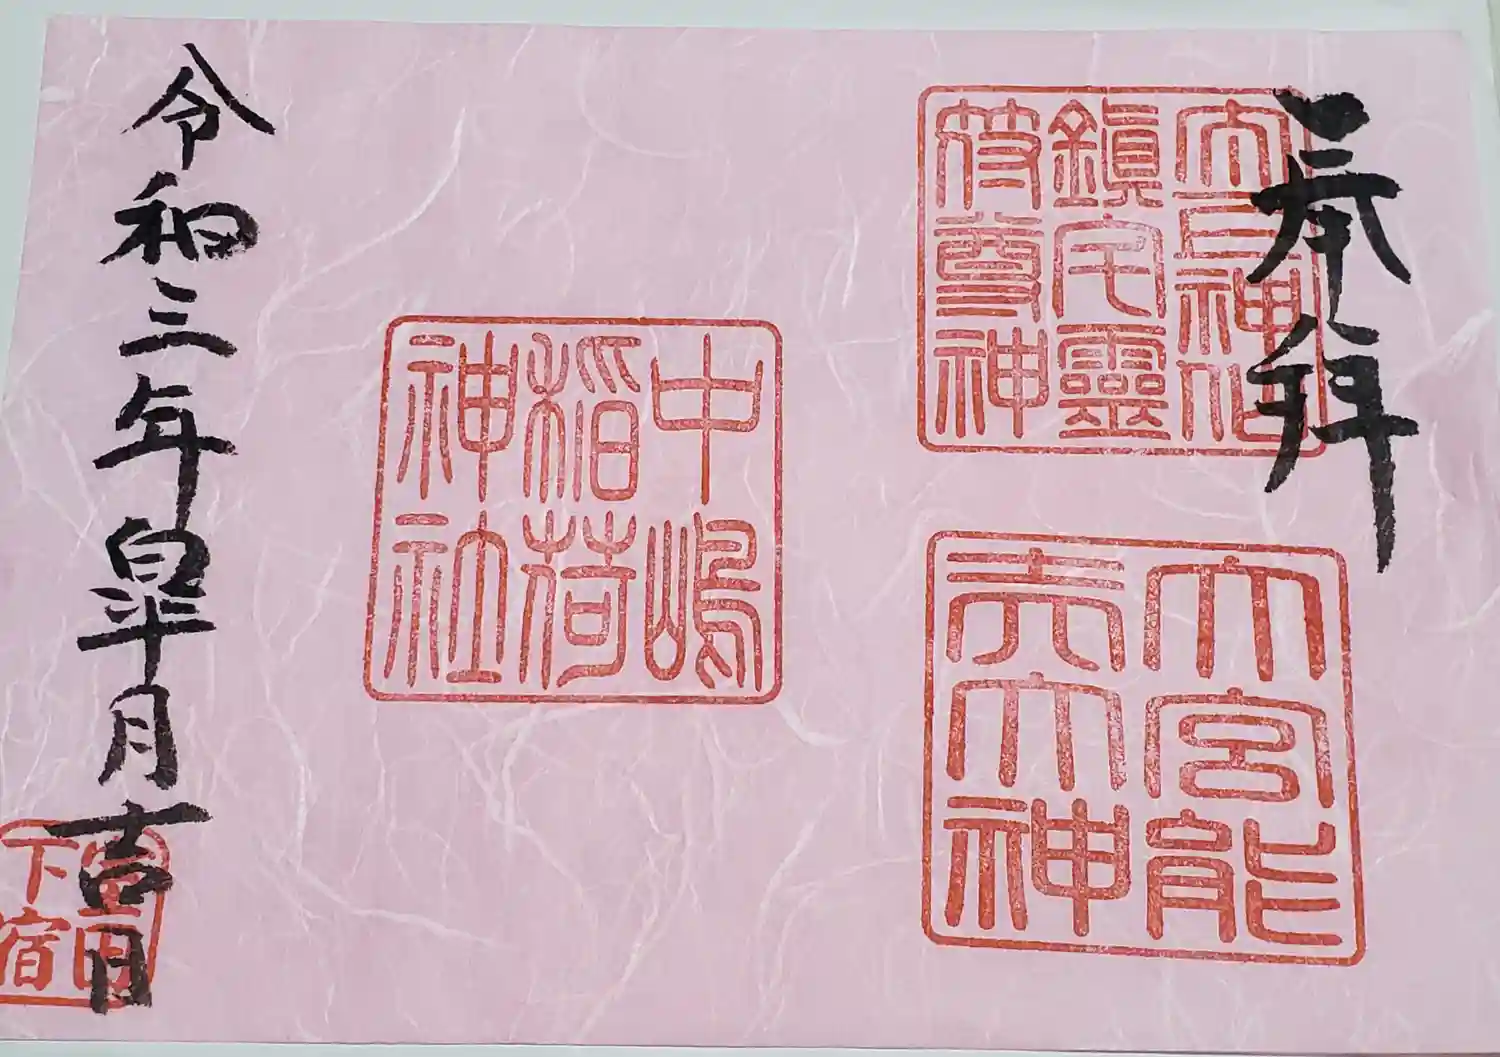 奉拝
太上神仙
鎮宅靈
符尊神
大宮能
売大神
中嶋
稲荷
神社
令和三年皐月吉日
下宿